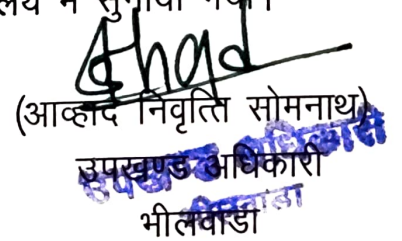 में सुनाया गया।
(आव्हाद निवृत्ति सोमनाथ)
उपखण्ड अधिकारी
भीलवाडा
उपखण्ड अधिकारी
भीलवाडा